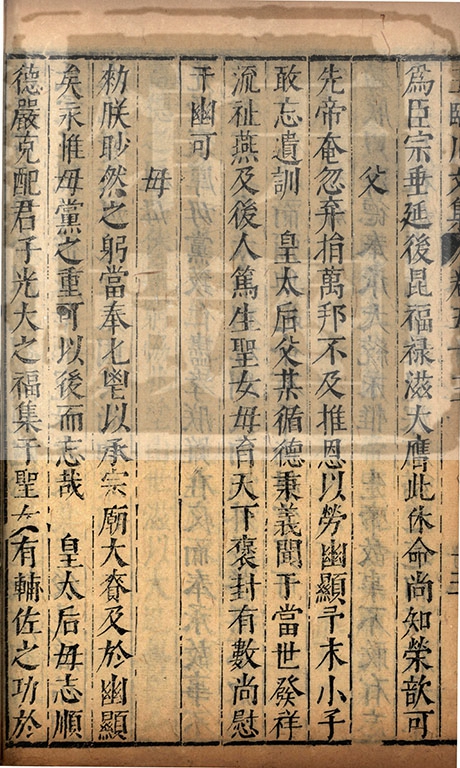 王臨川文集 卷五十三
為臣宗垂延後昆福祿滋大膺此休命尚知榮歆可
父
先帝奄忽弃捐萬邦不及推恩以勞幽顯予末小子
敢忘遺訓 皇太后父某循德秉義聞于當世發祥
流祉燕及後人篤生聖女毋育天下褒封有數尚慰
于幽可
毋
勑朕眇然之躬當奉匕鬯以承宗廟大賚及於幽顯
矣永惟毋黨之重可以後而忘哉 皇太后毋志順
德嚴克配君子光大之福集于聖女有輔佐之功於